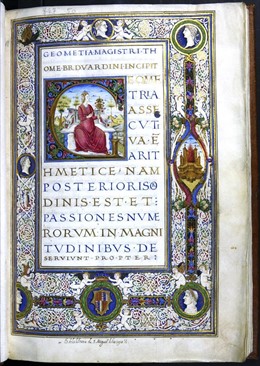 GEOMETIA MAGISTRI·TH
OME·BRDVARDINI INCIPIT
GEOME
TRIA
ASSE
CVTI
VA·E
ARIT
HMETICE·NAM
POSTERIORIS O
DINIS·EST·ET:
PASSIONES NVME
RORVM·IN MAGNI
TVDINIBVS·DE
SERVIVNT·PROPTER